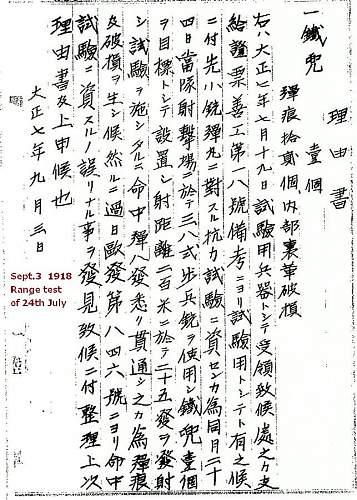 理由書
一鐵兜 壹個
彈痕拾貳個內部裏革破損
右ハ大正七年七月十九日試驗用兵器トシテ受領致候處之カ支
給證票善工第一八號備考ニヨリ試驗用トシテト有之候
ニ付先小銃彈丸ニ對スル抗力試驗ニ資センカ為同月二十
四日當隊射擊場ニ於テ三八式步兵銃ヲ使用シ鐵兜壹個
ヲ目標トシテ設置シ射距離二百米ニ於テ二十五發ヲ發射
シ試驗ヲ施シタルニ命中彈八發悉ク貫通シ之カ為彈痕
及破損ヲ生シ候然ルニ過日歐發第八四六號ニヨリ命中
試驗ニ資スルノ誤リナル事ヲ發見致候ニ付整理上次
理由書及上申候也
大正七年九月三日
Sept.3 1918
Range test
of 24th July